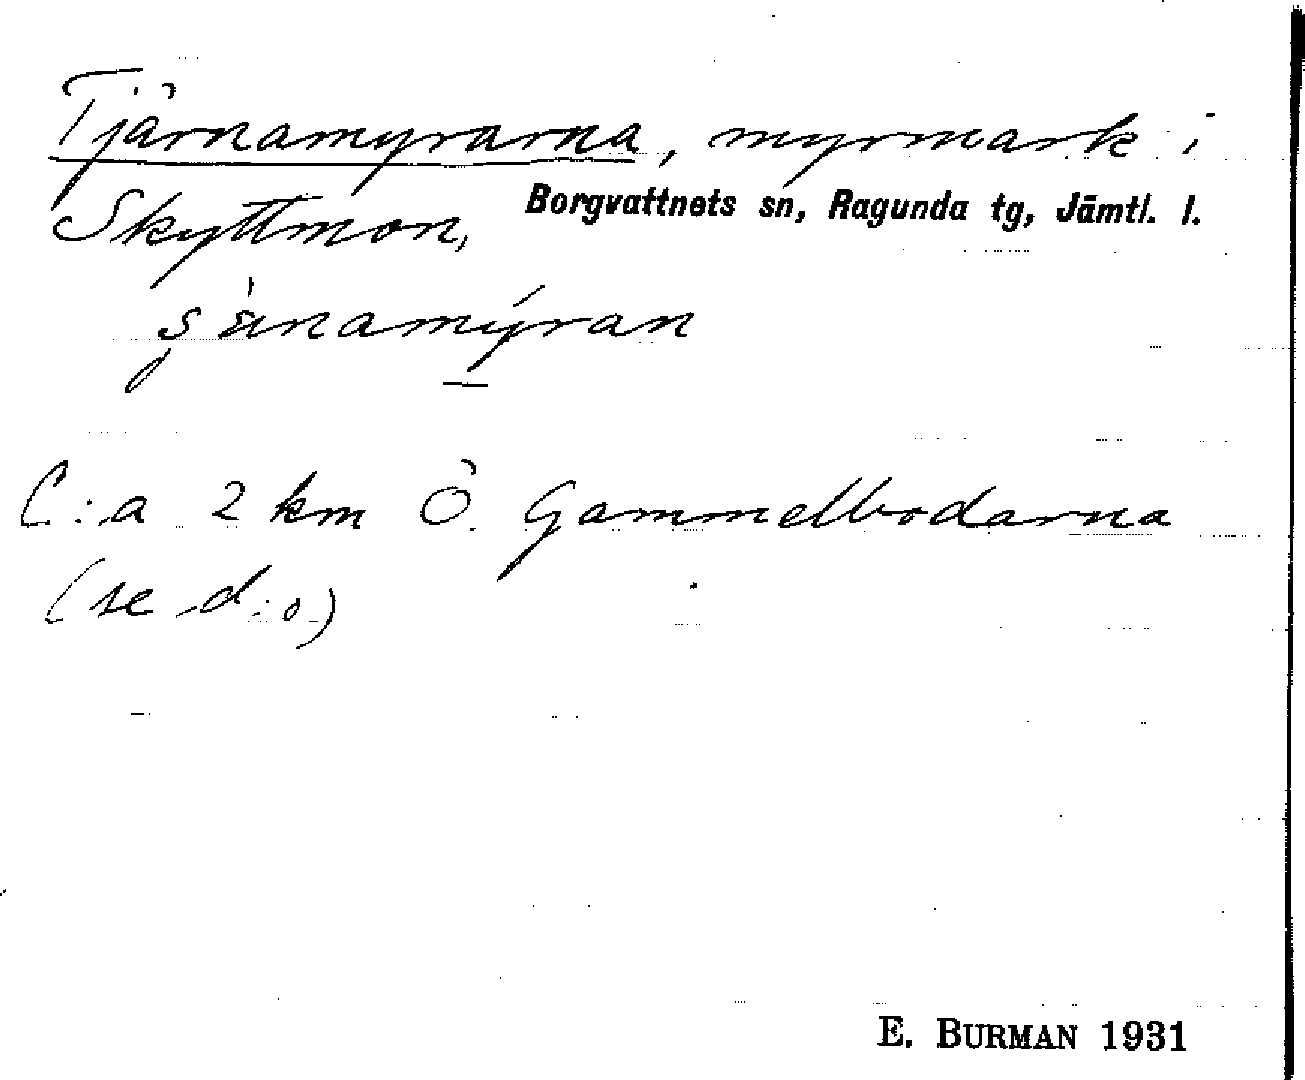 Tjärnamyrarna, myrmark i
Skyttmon, Borgvattnets sn, Ragunda tg, Jämtl. l.
şä̀namýran
C:a 2 km Ö. Gammelbodarna
(se d:o)
E. BURMAN 1931